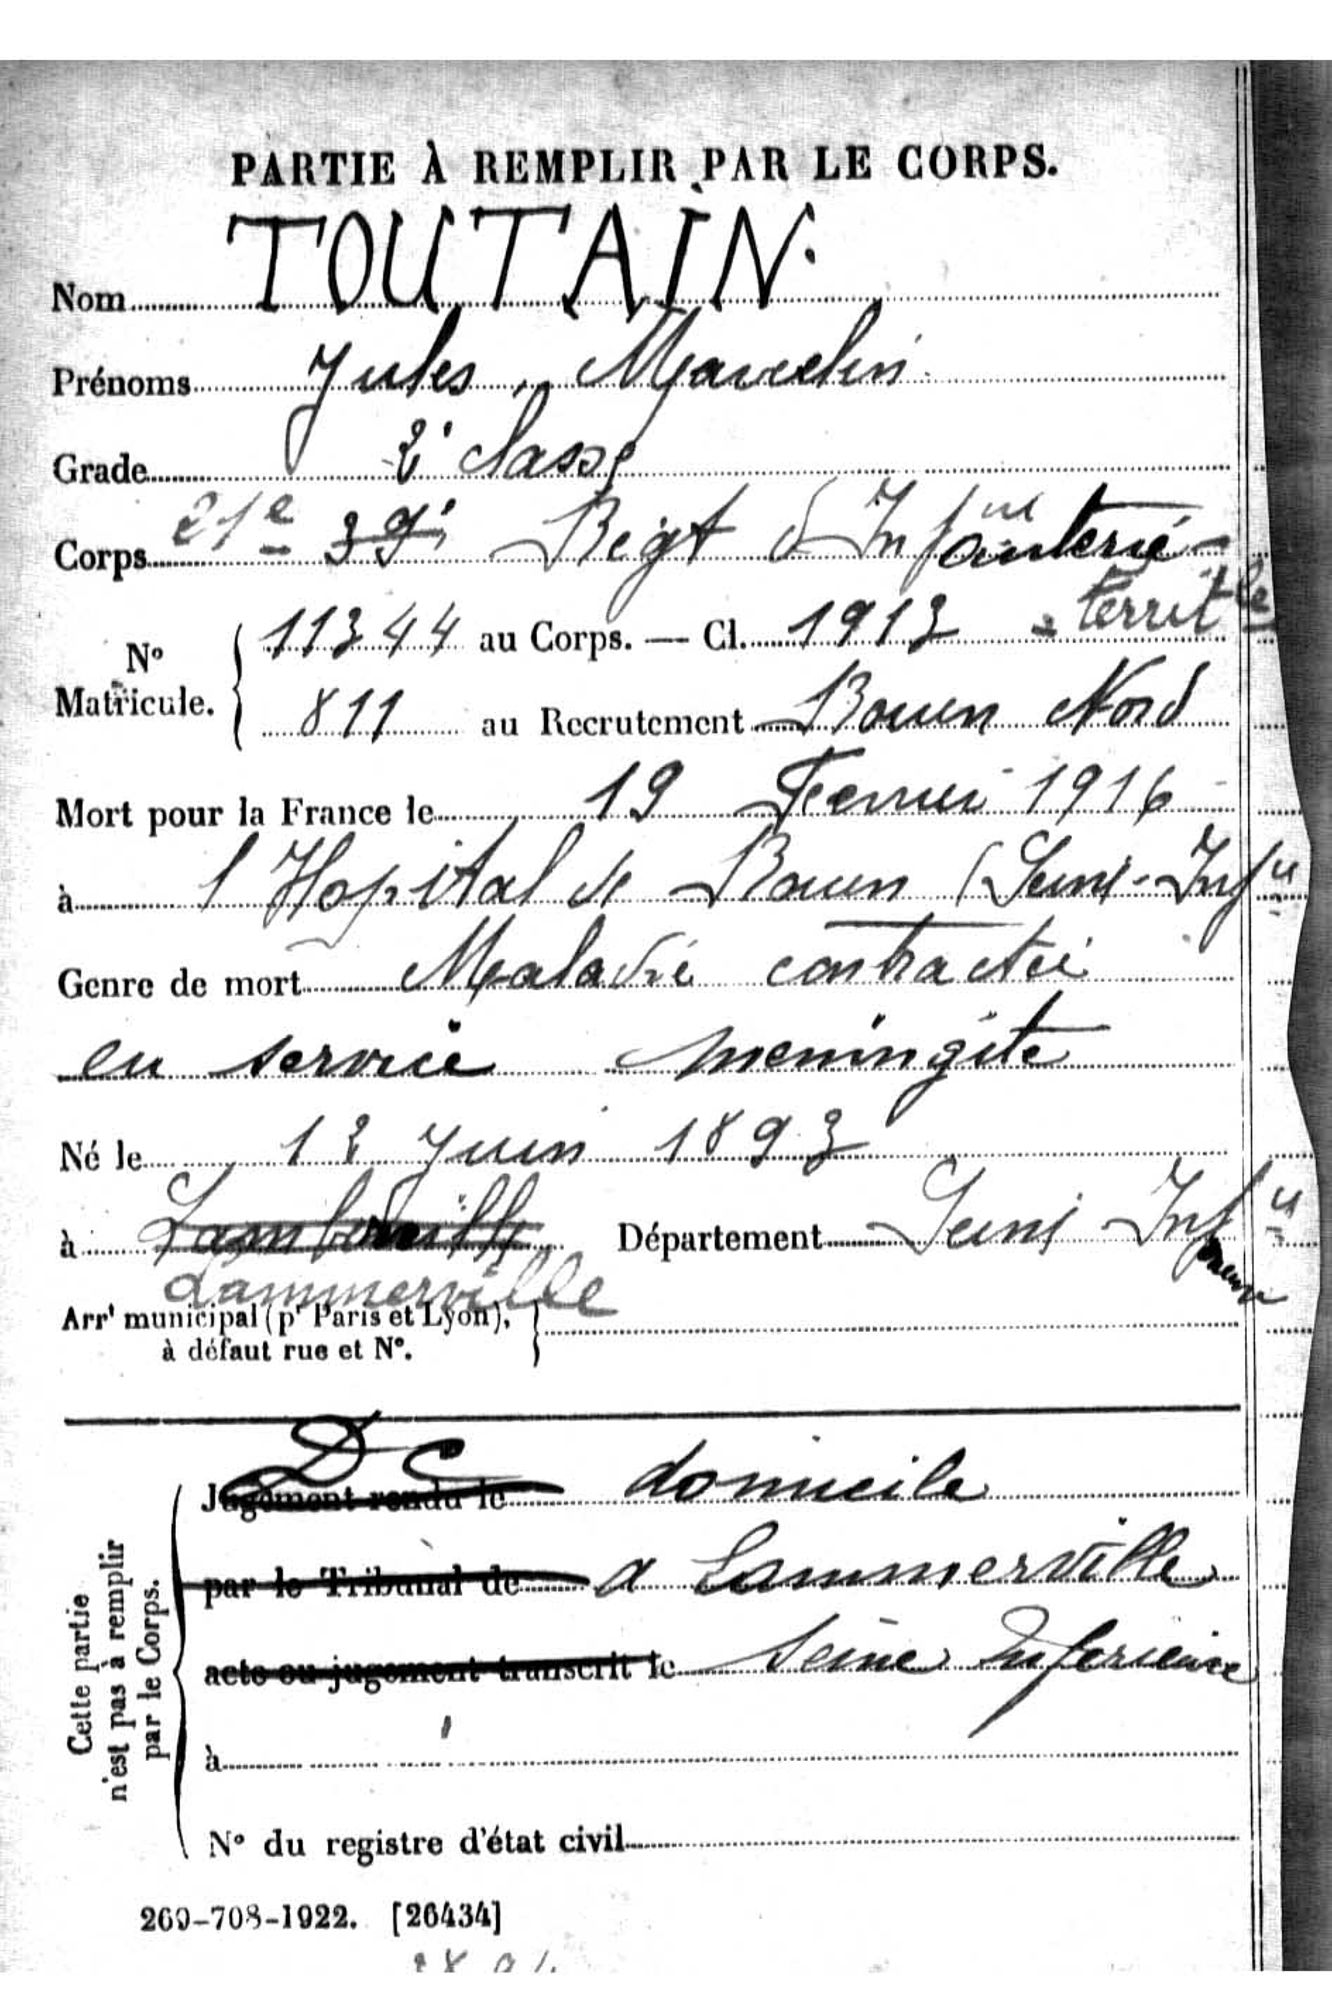 PARTIE À REMPLIR PAR LE CORPS.
Nom TOUTAIN.
Prénoms Jules, Marcelin
Grade 2e Classe
Corps 21e 39e Regt d'Infanterie
territle
N° Matricule. 11344 au Corps. — Cl. 1913
811 au Recrutement Rouen Nord
Mort pour la France le 19 Fevrier 1916
à l'Hopital de Rouen (Seine-Infre
Genre de mort Maladie contractée
en service meningite
Né le 12 Juin 1893
à Lamberville Département Seine Infre
Lammerville
Arrt municipal (pr Paris et Lyon),
à défaut rue et N°.
DC
Jugement rendu le domicile
par le Tribunal de a Lammerville
acte ou jugement transcrit le Seine Inferieure
à
N° du registre d'état civil
Cette partie
n'est pas à remplir
par le Corps.
269-708-1922. [26434]